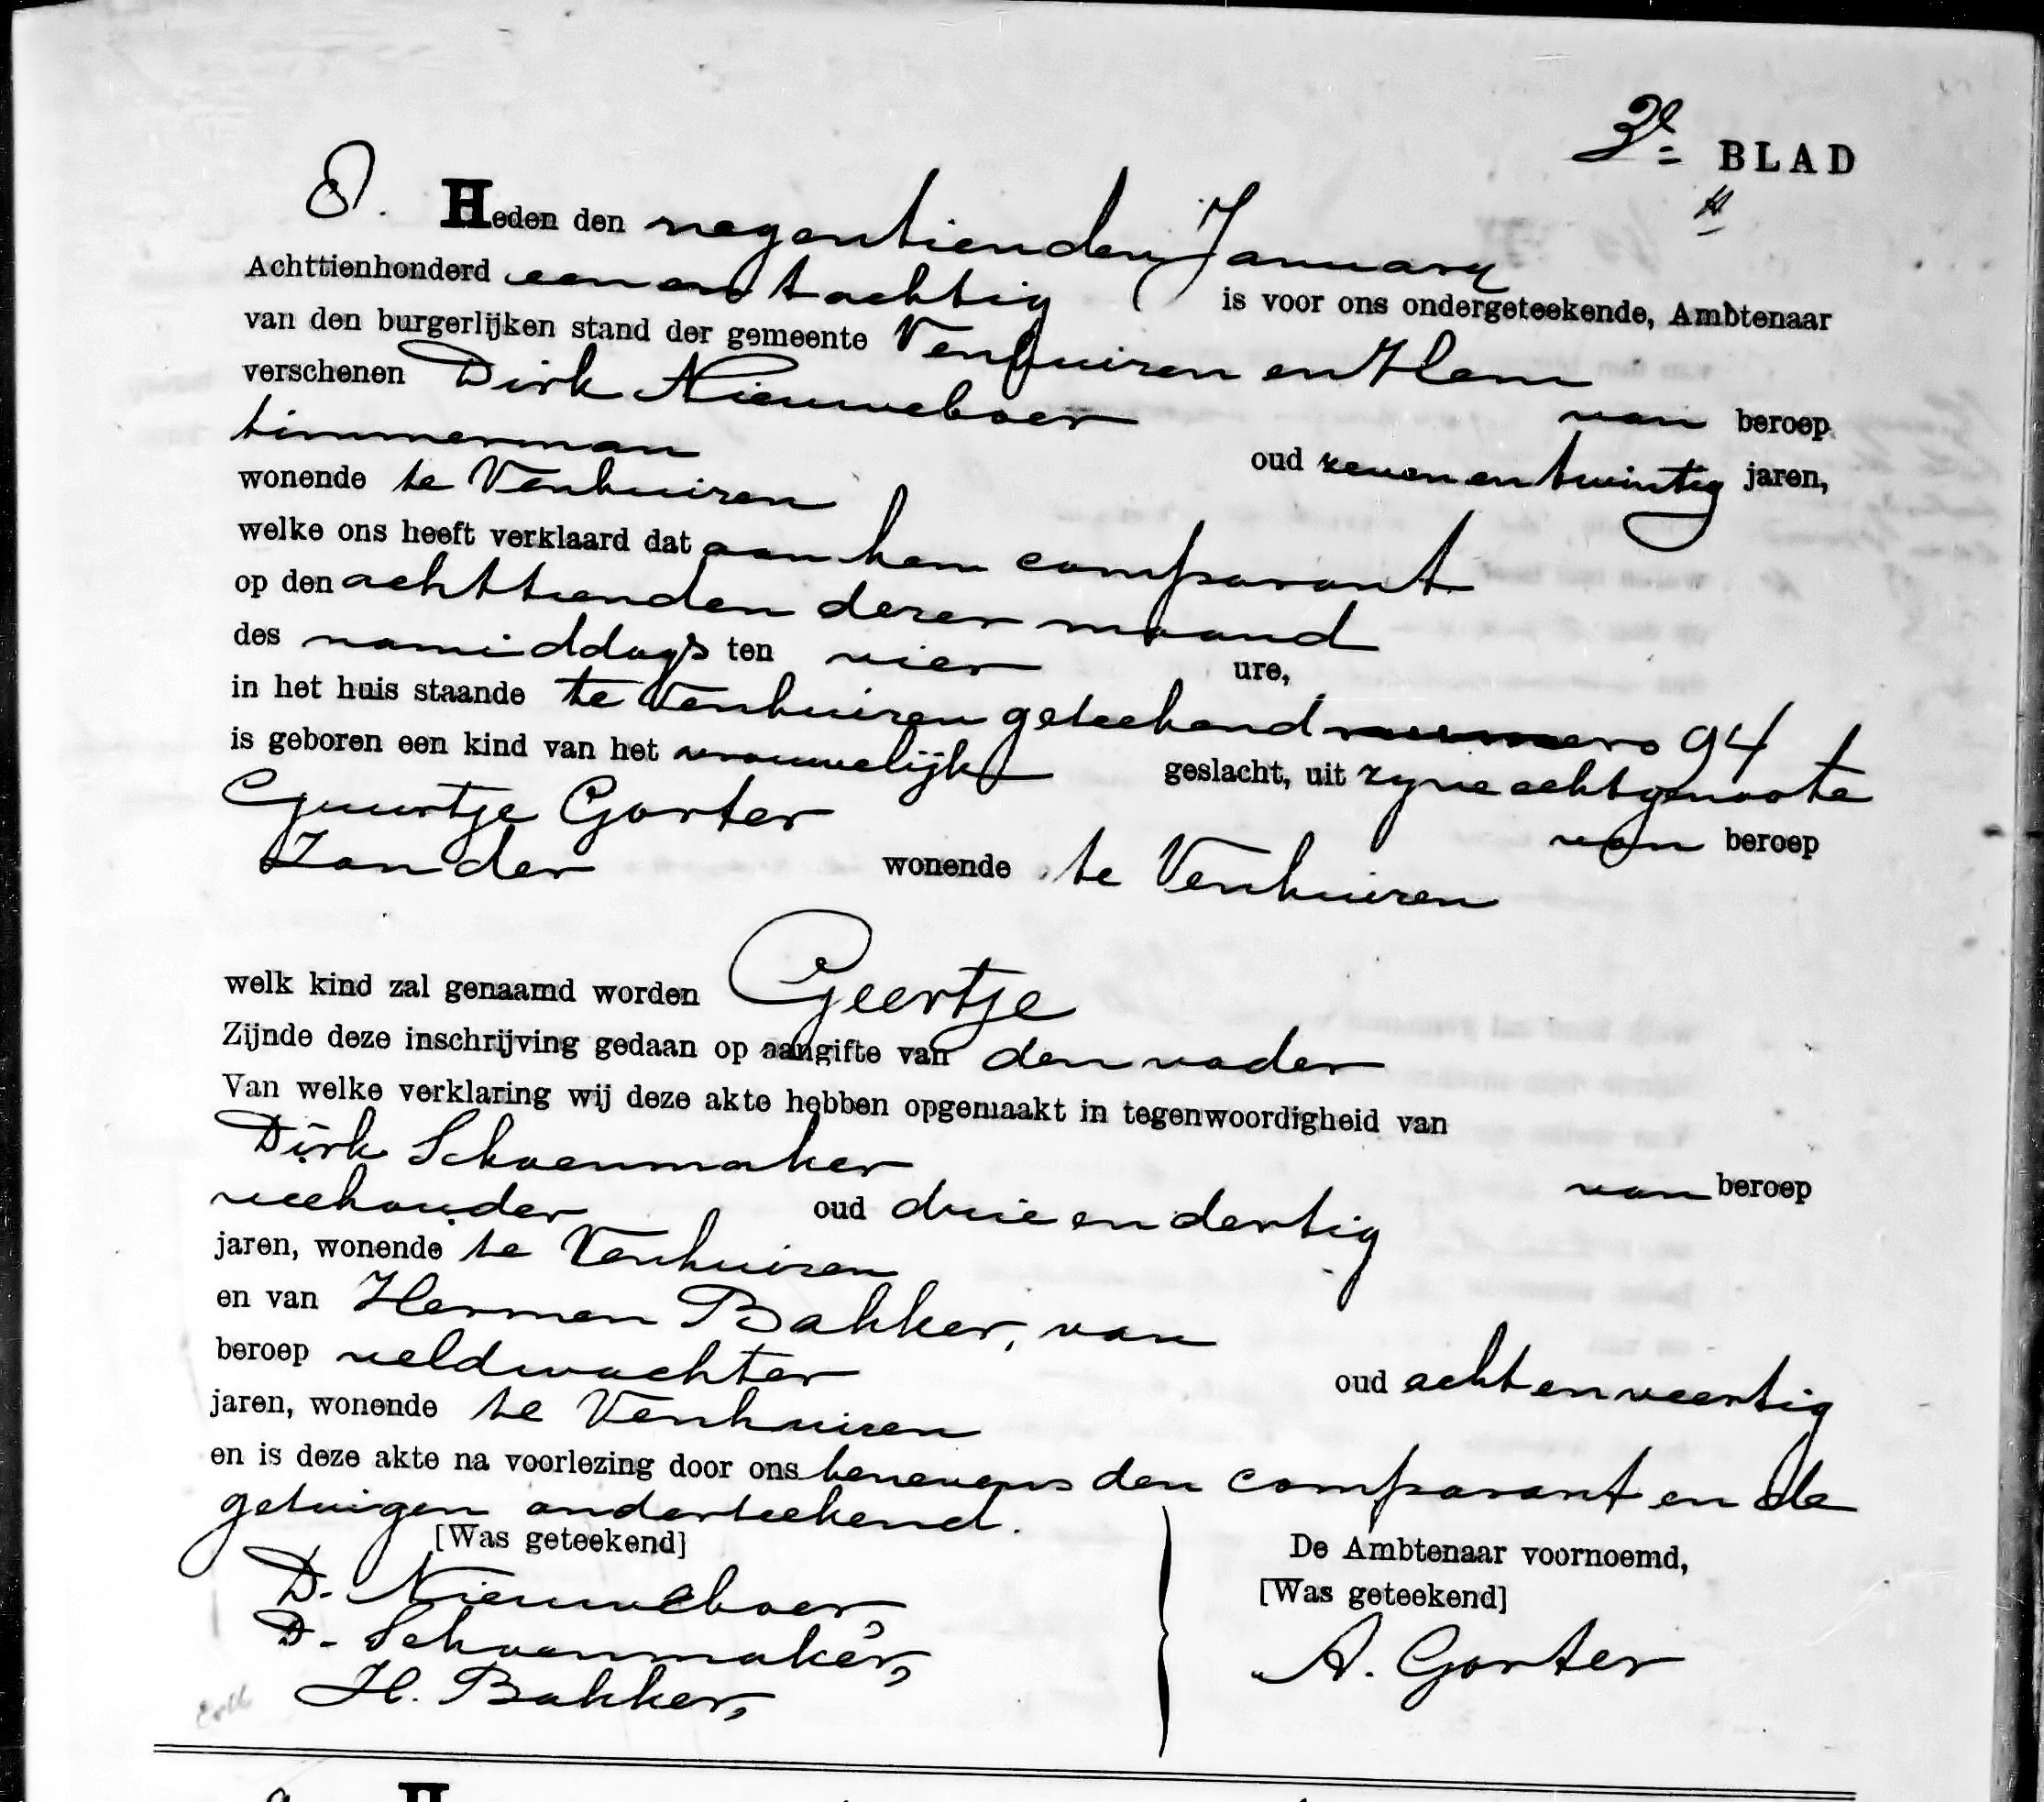 3e BLAD
8. Heden den negentienden January
Achttienhonderd een en tachtig is voor ons ondergeteekende, Ambtenaar
van den burgerlijken stand der gemeente Venhuizen en Hem
verschenen Dirk Nieuweboer van beroep
timmerman oud zeven en twintig jaren,
wonende te Venhuizen
welke ons heeft verklaard dat aan hem comparant
op den achttienden dezer maand
des namiddags ten vier ure,
in het huis staande te Venhuizen geteekend nummero 94
is geboren een kind van het vrouwelijk geslacht, uit zyne echtgenoote
Guurtje Gorter van beroep
Zonder wonende te Venhuizen
welk kind zal genaamd worden Geertje
Zijnde deze inschrijving gedaan op aangifte van den vader
Van welke verklaring wij deze akte hebben opgemaakt in tegenwoordigheid van
Dirk Schoenmaker van beroep
veehouder oud drie en dertig
jaren, wonende te Venhuizen
en van Hermen Bakker, van
beroep veldwachter oud acht en veertig
jaren, wonende te Venhuizen
en is deze akte na voorlezing door ons benevens den comparant en de
getuigen onderteekend.
[Was geteekend] De Ambtenaar voornoemd,
D. Nieuweboer, [Was geteekend]
D. Schoenmaker, A. Gorter
H. Bakker,